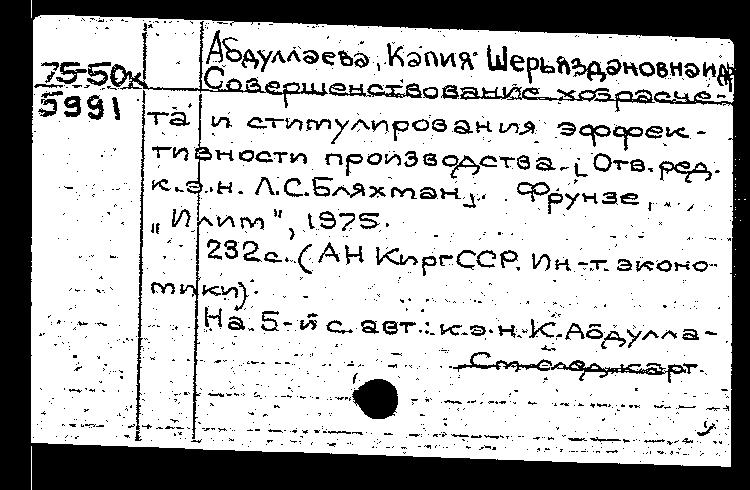 75-50к
5991
Абдуллаева, Капия Шерьяздановна и др
Совершенствование хозрасче-
та и стимулирования эффек-
тивности производства. [Отв. ред.
к.э.н. Л.С. Бляхман]. Фрунзе,
„Илим", 1975.
232с. (АН КиргССР. Ин-т. эконо-
мики).
На 5-й с. авт.: к.э.н. К. Абдулла-
См след. карт.